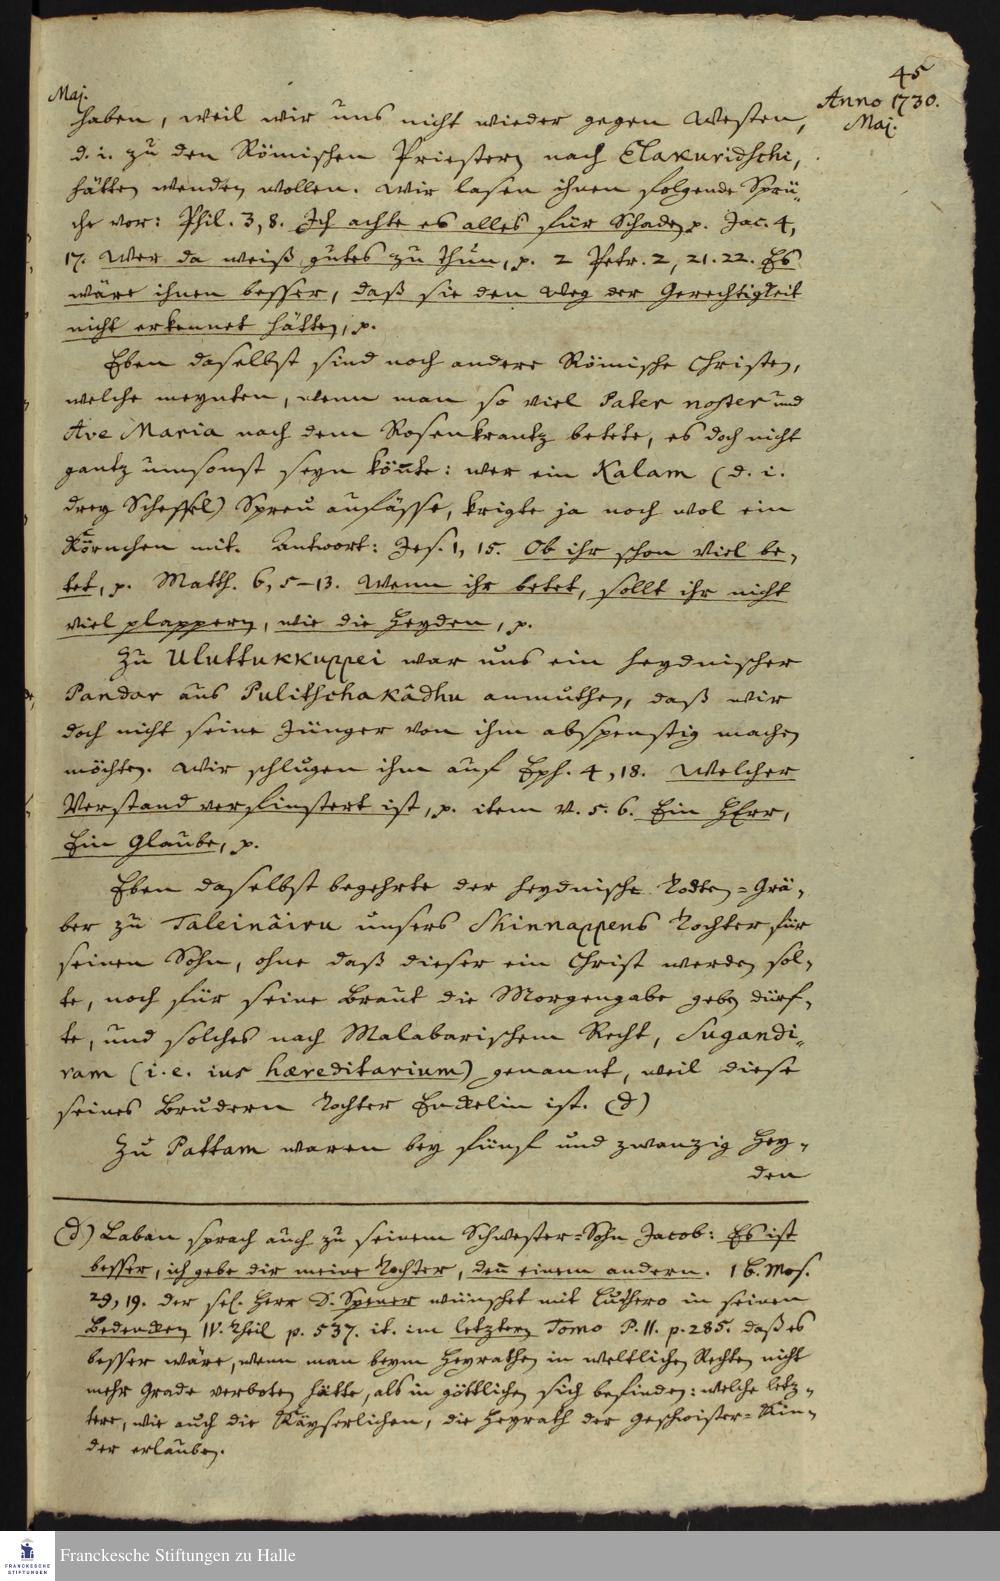 45
Anno 1730.
Maj.
Maj.
haben, weil wir uns nicht wieder gegen Westen,
d. i. zu den Römischen Priestern nach Elakuridschi,
hätten wenden wollen. Wir lasen ihnen folgende Sprü-
che vor: Phil. 3, 8. Ich achte es alles für Schaden p. Jac. 4,
17. Wer da weiß gutes zu thun, p. 2 Petr. 2, 21. 22. Es
wäre ihnen besser, daß sie den Weg der Gerechtigkeit
nicht erkennet hätten, p.
Eben daselbst sind noch andere Römische Christen,
welche meynten, wenn man so viel Pater noster und
Ave Maria nach dem Rosenkrantz betete, es doch nicht
gantz umsonst seyn köñte: wer ein Kalam (d. i.
drey Scheffel) Spreu auffässe, krigte ja noch wol ein
Körnchen mit. Antwort: Jes. 1, 15. Ob ihr schon viel be-
tet, p. Matth. 6, 5–13. Wenn ihr betet, sollt ihr nicht
viel plappern, wie die Heyden, p.
Zu Uluttukkuppei war uns ein heydnischer
Pandar aus Pulitschakâdhu anmuthen, daß wir
doch nicht seine Jünger von ihm abspenstig machen
möchten. Wir schlugen ihm auf Eph. 4, 18. Welcher
Verstand verfinstert ist, p. item v. 5. 6. Ein HErr,
Ein Glaube, p.
Eben daselbst begehrte der heydnische Todten-Grä-
ber zu Taleinâiru unsers Shinnappens Tochter für
seinen Sohn, ohne daß dieser ein Christ werden sol-
te, noch für seine Braut die Morgengabe geben dürf-
te, und solches nach Malabarischem Recht, Sugandi-
ram (i. e. ius hæreditarium) genannt, weil diese
seines Brudern Tochter Enckelin ist. (d)
Zu Pattam waren bey fünf und zwanzig Hey-
den
(d) Laban sprach auch zu seinem Schwester-Sohn Jacob: Es ist
besser, ich gebe dir meine Tochter, deñ einem andern. 1 B. Mos.
29, 19. der sel. Herr D. Spener wünschet mit Luthero in seinen
Bedencken IV. Theil p. 537. it. im letzten Tomo P. II. p. 285. daß es
besser wäre, wenn man beym Heyrathen in weltlichen Rechten nicht
mehr Grade verboten hätte, als in göttlichen sich befinden: welche letz-
tere, wie auch die Käyserlichen, die Heyrath der Geschwister-Kin-
der erlauben.
FRANCKESCHE
STIFTUNGEN
Franckesche Stiftungen zu Halle